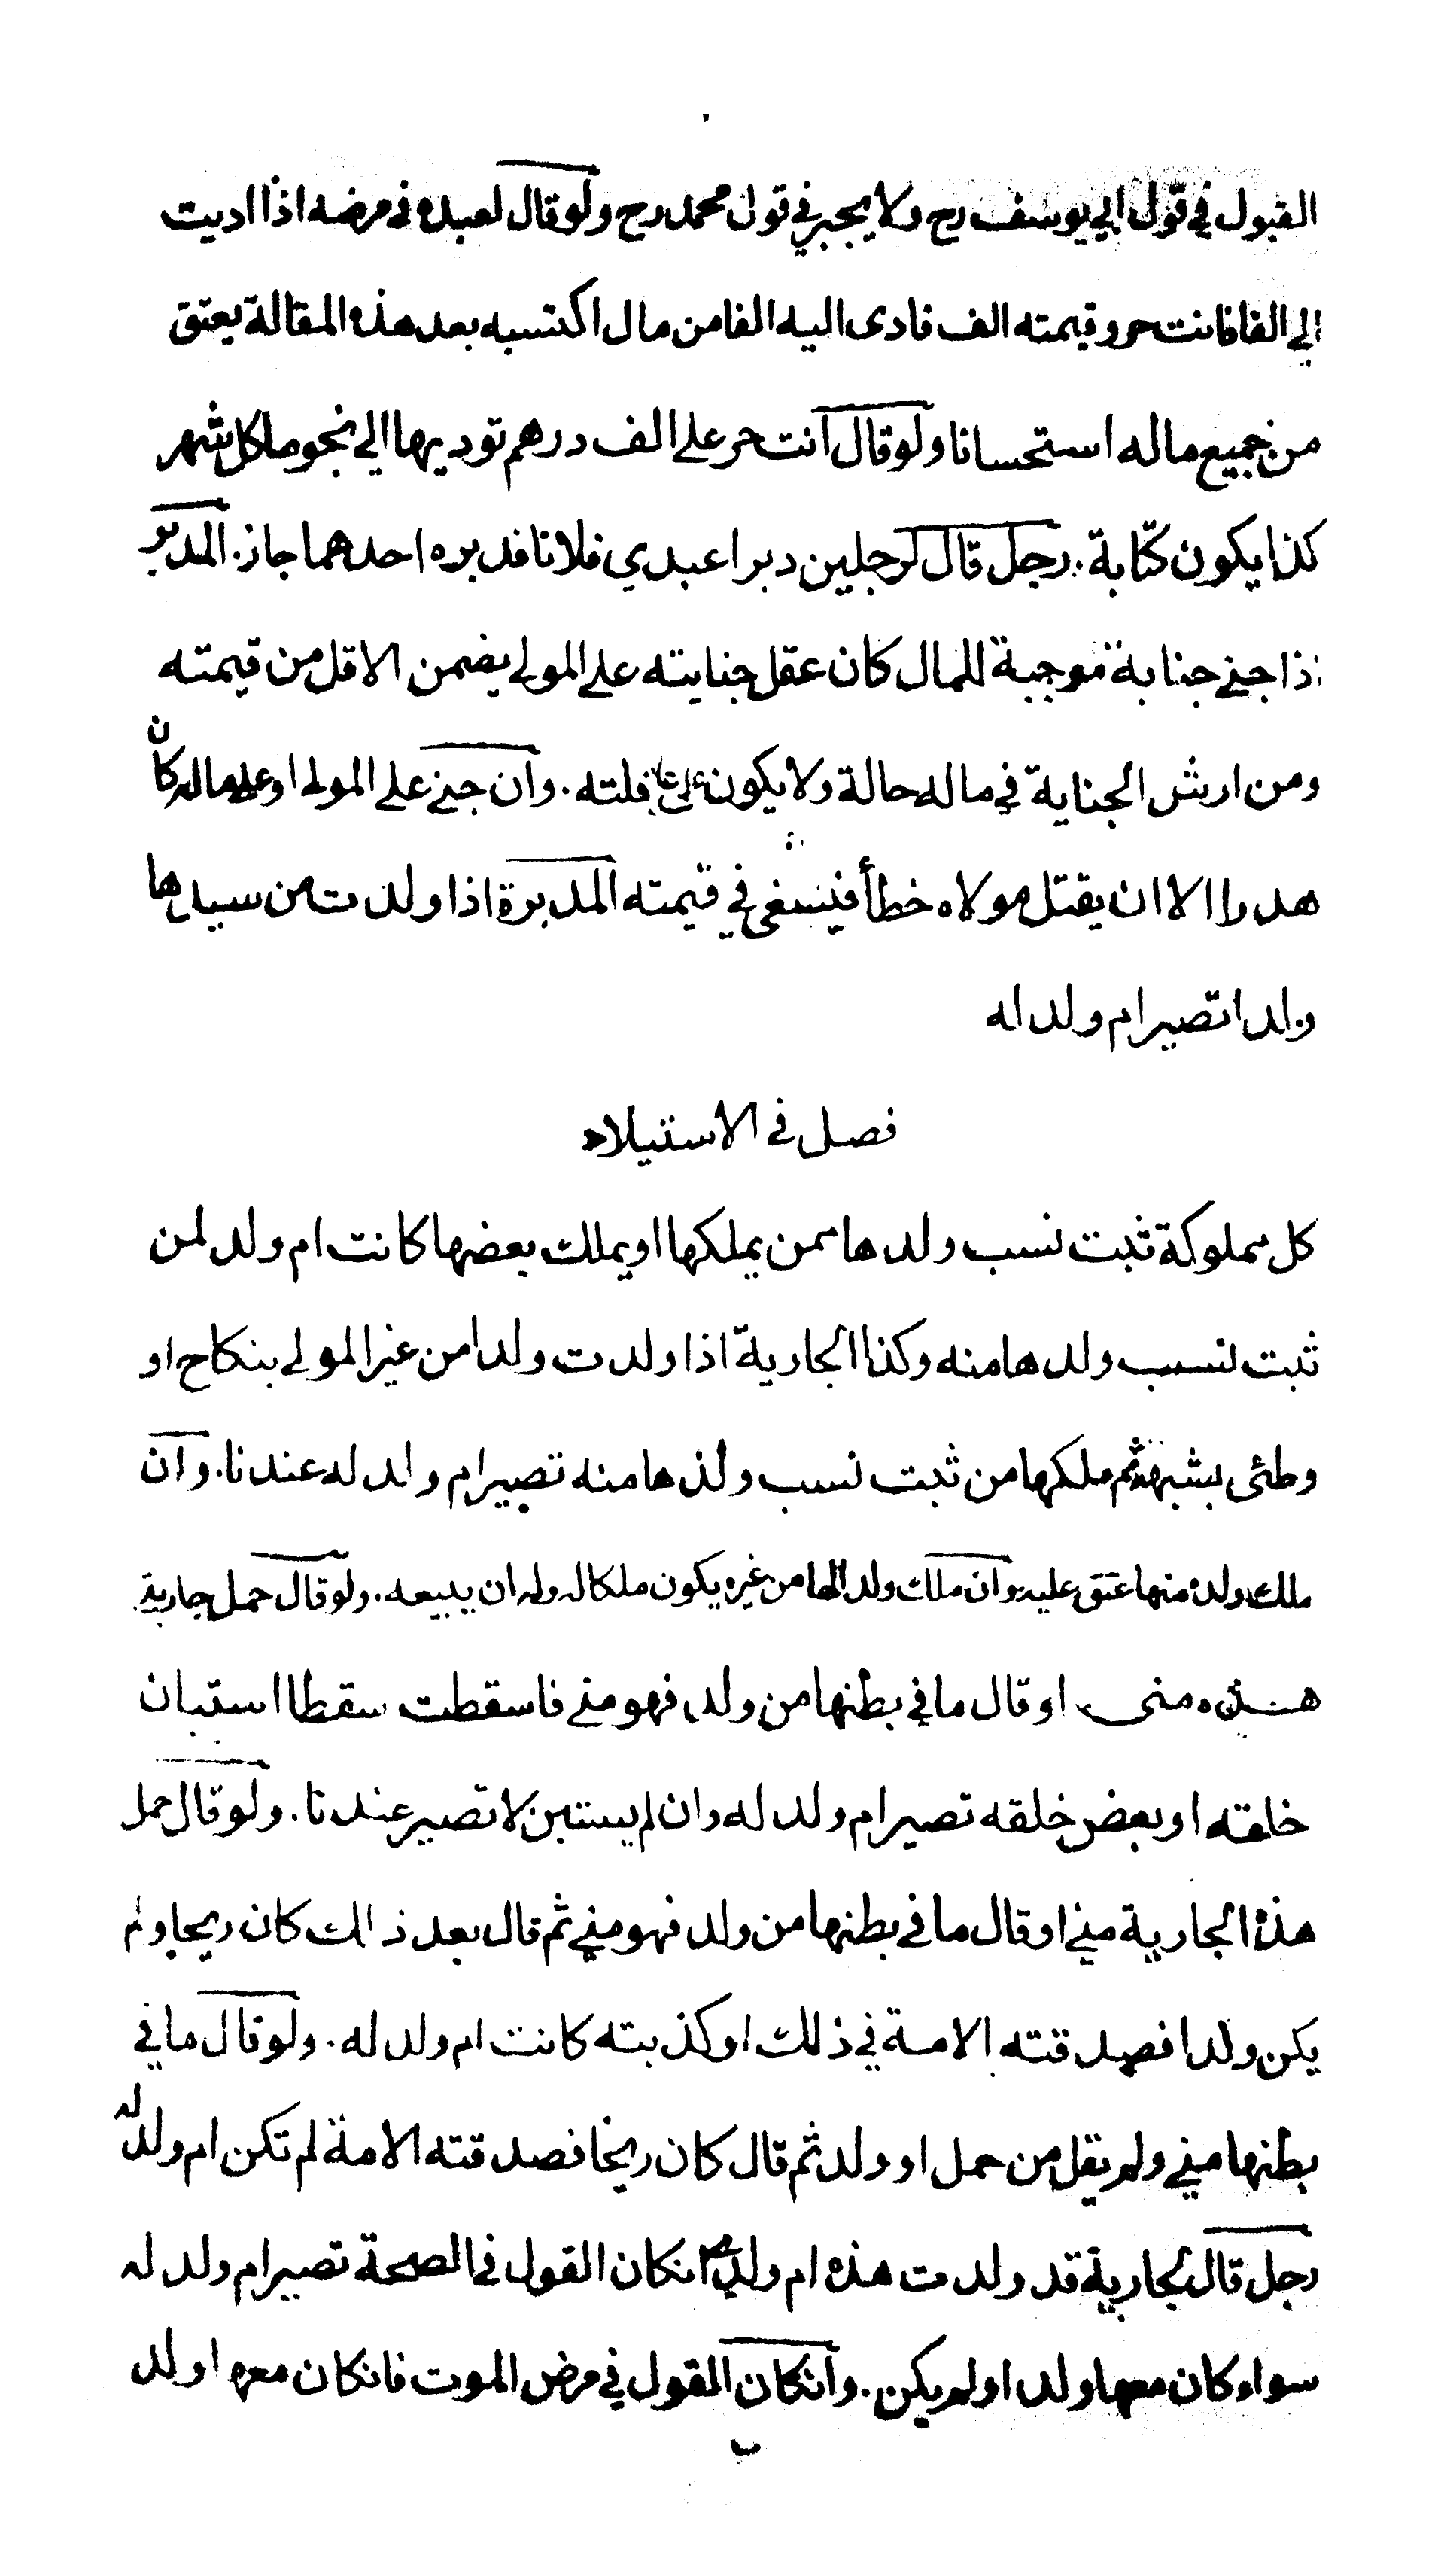 القبول في قول ابي يوسف رح ولا يجبر في قول محمد رح ولو قال لعبده في مرضه اذا اديت
الي الفا فانت حر وقيمته الف فادى اليه الفا من مال اكتسبه بعد هذه المقالة يعتق
من جميع ماله استحسانا ولو قال انت حر علي الف درهم توديها الي نجوما كل شهر
كذا يكون كتابة . رجل قال لرجلين دبرا عبدي فلانا فدبره احدهما جاز . المدبر
اذا جني جناية موجبة للمال كان عقل جنايته علي المولي يضمن الاقل من قيمته
ومن ارش الجناية في ماله حالة ولا يكون علي عاقلته . وان جني علي المولي او علي ماله كان
هدرا الا ان يقتل مولاه خطأ فيسعى في قيمته المدبرة اذا ولدت من سيدها
ولدا تصير ام ولد له
فصل في الاستيلاد
كل مملوكة ثبت نسب ولدها ممن يملكها او يملك بعضها كانت ام ولد لمن
ثبت نسب ولدها منه وكذا الجارية اذا ولدت ولدا من غير المولي بنكاح او
وطئى بشبهة ثم ملكها من ثبت نسب ولدها منه تصير ام ولد له عندنا . وان
ملك ولده منها عتق عليه وان ملك ولدا لها من غيره يكون ملكا له وله ان يبيعه . ولو قال حمل جارية
هذه منى او قال ما في بطنها من ولد فهو مني فاسقطت سقطا استبان
خلقه او بعض خلقه تصير ام ولد له وان لم يستبن لا تصير عندنا . ولو قال حمل
هذه الجارية مني او قال ما في بطنها من ولد فهو مني ثم قال بعد ذلك كان ريحا ولم
يكن ولدا فصدقته الامة في ذلك او كذبته كانت ام ولد له . ولو قال ما في
بطنها مني ولم يقل من حمل او ولد ثم قال كان ريحا فصدقته الامة لم تكن ام ولد له
رجل قال لجارية قد ولدت هذه ام ولدي انكان القول في الصحة تصير ام ولد له
سواء كان معها ولد او لم يكن . وانكان القول في مرض الموت فانكان معها ولد